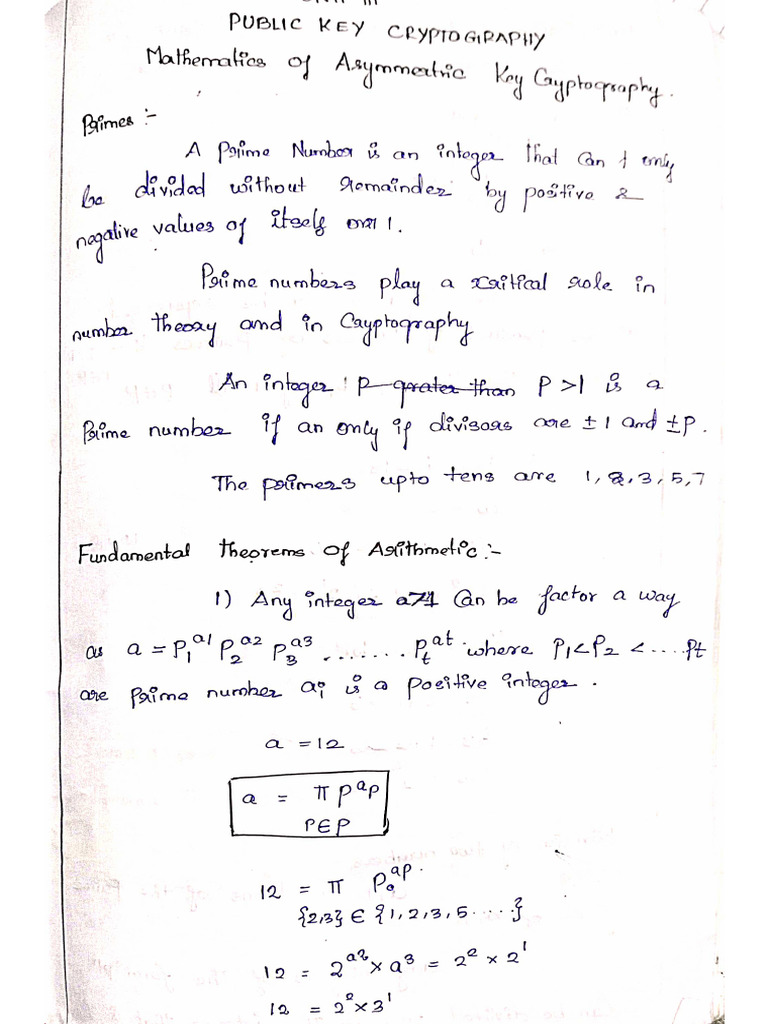 III
PUBLIC KEY CRYPTOGRAPHY
Mathematics of Asymmertric Key Cryptography.
Primes :-
A Prime Number is an integer that can only
be divided without remainder by positive &
negative values of itself 1.
Prime numbers play a critical role in
number theory and in Cryptography
An integer P greater than P >1 is a
Prime number if an only if divisors are ±1 and ±P.
The primers upto tens are 1, 2, 3, 5, 7
Fundamental theorems of Arithmetic :-
1) Any integer a>1 Can be factor a way
as a = P₁^a1 P₂^a2 P₃^a3 ....... Pₜ^at where P₁<P₂ <....Pt
are prime number ai is a positive integer.
a = 12
a = π P^ap
P∈P
12 = π Pₐ^ap.
{2,3} ∈ {1, 2, 3, 5 ....}
12 = 2^a2 × a^3 = 2^2 × 2^1
12 = 2^2 × 3^1